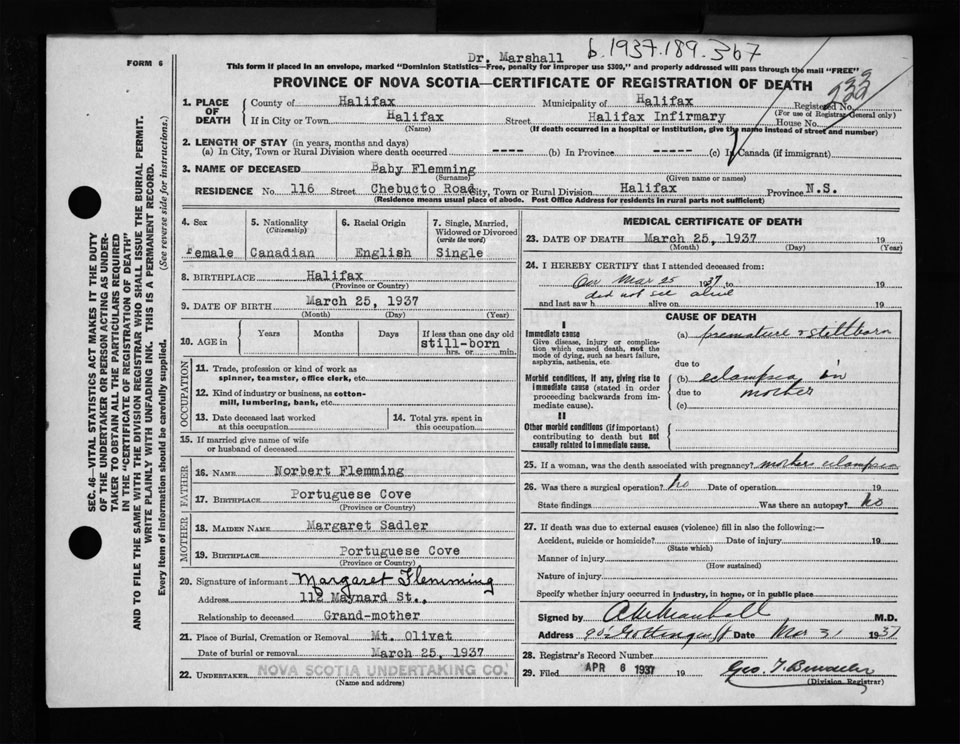 b.1937.189.367
Dr. Marshall
FORM 6
This form if placed in an envelope, marked "Dominion Statistics—Free, penalty for improper use $300," and properly addressed will pass through the mail "FREE"
PROVINCE OF NOVA SCOTIA—CERTIFICATE OF REGISTRATION OF DEATH
1. PLACE OF DEATH { County of Halifax Municipality of Halifax Registered No.
(For use of Registrar General only)
If in City or Town Halifax Street Halifax Infirmary House No.
(Name) (If death occurred in a hospital or institution, give the name instead of street and number)
2. LENGTH OF STAY (in years, months and days)
(a) In City, Town or Rural Division where death occurred ---- (b) In Province ----- (c) In Canada (if immigrant)
3. NAME OF DECEASED Baby Flemming
(Surname) (Given name or names)
RESIDENCE No. 116 Street Chebucto Road City, Town or Rural Division Halifax Province N.S.
(Residence means usual place of abode. Post Office Address for residents in rural parts not sufficient)
4. Sex Female
5. Nationality (Citizenship) Canadian
6. Racial Origin English
7. Single, Married, Widowed or Divorced (write the word) Single
8. BIRTHPLACE Halifax
(Province or Country)
9. DATE OF BIRTH March 25, 1937
(Month) (Day) (Year)
10. AGE in { Years Months Days If less than one day old
still-born
hrs. or min.
OCCUPATION
11. Trade, profession or kind of work as
spinner, teamster, office clerk, etc.
12. Kind of industry or business, as cotton-
mill, lumbering, bank, etc.
13. Date deceased last worked at this occupation
14. Total yrs. spent in this occupation
15. If married give name of wife
or husband of deceased
FATHER
16. NAME Norbert Flemming
17. BIRTHPLACE Portuguese Cove
(Province or Country)
MOTHER
18. MAIDEN NAME Margaret Sadler
19. BIRTHPLACE Portuguese Cove
(Province or Country)
20. Signature of informant Margaret Flemming
Address 112 Maynard St.,
Relationship to deceased Grand-mother
21. Place of Burial, Cremation or Removal Mt. Olivet
Date of burial or removal March 25, 1937
22. UNDERTAKER NOVA SCOTIA UNDERTAKING CO.
(Name and address)
MEDICAL CERTIFICATE OF DEATH
23. DATE OF DEATH March 25, 1937 19
(Month) (Day) (Year)
24. I HEREBY CERTIFY that I attended deceased from:
On Mar 25 1937 to 19
and last saw h did not see alive alive on 19
CAUSE OF DEATH
I
Immediate cause (a) premature & stillborn
Give disease, injury or complica-
tion which caused death, not the
mode of dying, such as heart failure,
asphyxia, asthenia, etc. due to
Morbid conditions, if any, giving rise to (b) eclampsia in
immediate cause (stated in order due to mother
proceeding backwards from im-
mediate cause). (c)
II
Other morbid conditions (if important)
contributing to death but not
causally related to immediate cause.
25. If a woman, was the death associated with pregnancy? mother eclampsia
26. Was there a surgical operation? no Date of operation 19
State findings Was there an autopsy? no
27. If death was due to external causes (violence) fill in also the following:—
Accident, suicide or homicide? Date of injury 19
(State which)
Manner of injury
(How sustained)
Nature of injury
Specify whether injury occurred in industry, in home, or in public place
Signed by M.D.
Address Gottingen St Date Mar 31 1937
28. Registrar's Record Number
29. Filed APR 6 1937 19
(Division Registrar)
SEC. 46—VITAL STATISTICS ACT MAKES IT THE DUTY
OF THE UNDERTAKER OR PERSON ACTING AS UNDER-
TAKER TO OBTAIN ALL THE PARTICULARS REQUIRED
IN THE "CERTIFICATE OF REGISTRATION OF DEATH"
AND TO FILE THE SAME WITH THE DIVISION REGISTRAR WHO SHALL ISSUE THE BURIAL PERMIT.
WRITE PLAINLY WITH UNFADING INK. THIS IS A PERMANENT RECORD.
Every item of information should be carefully supplied. (See reverse side for instructions.)